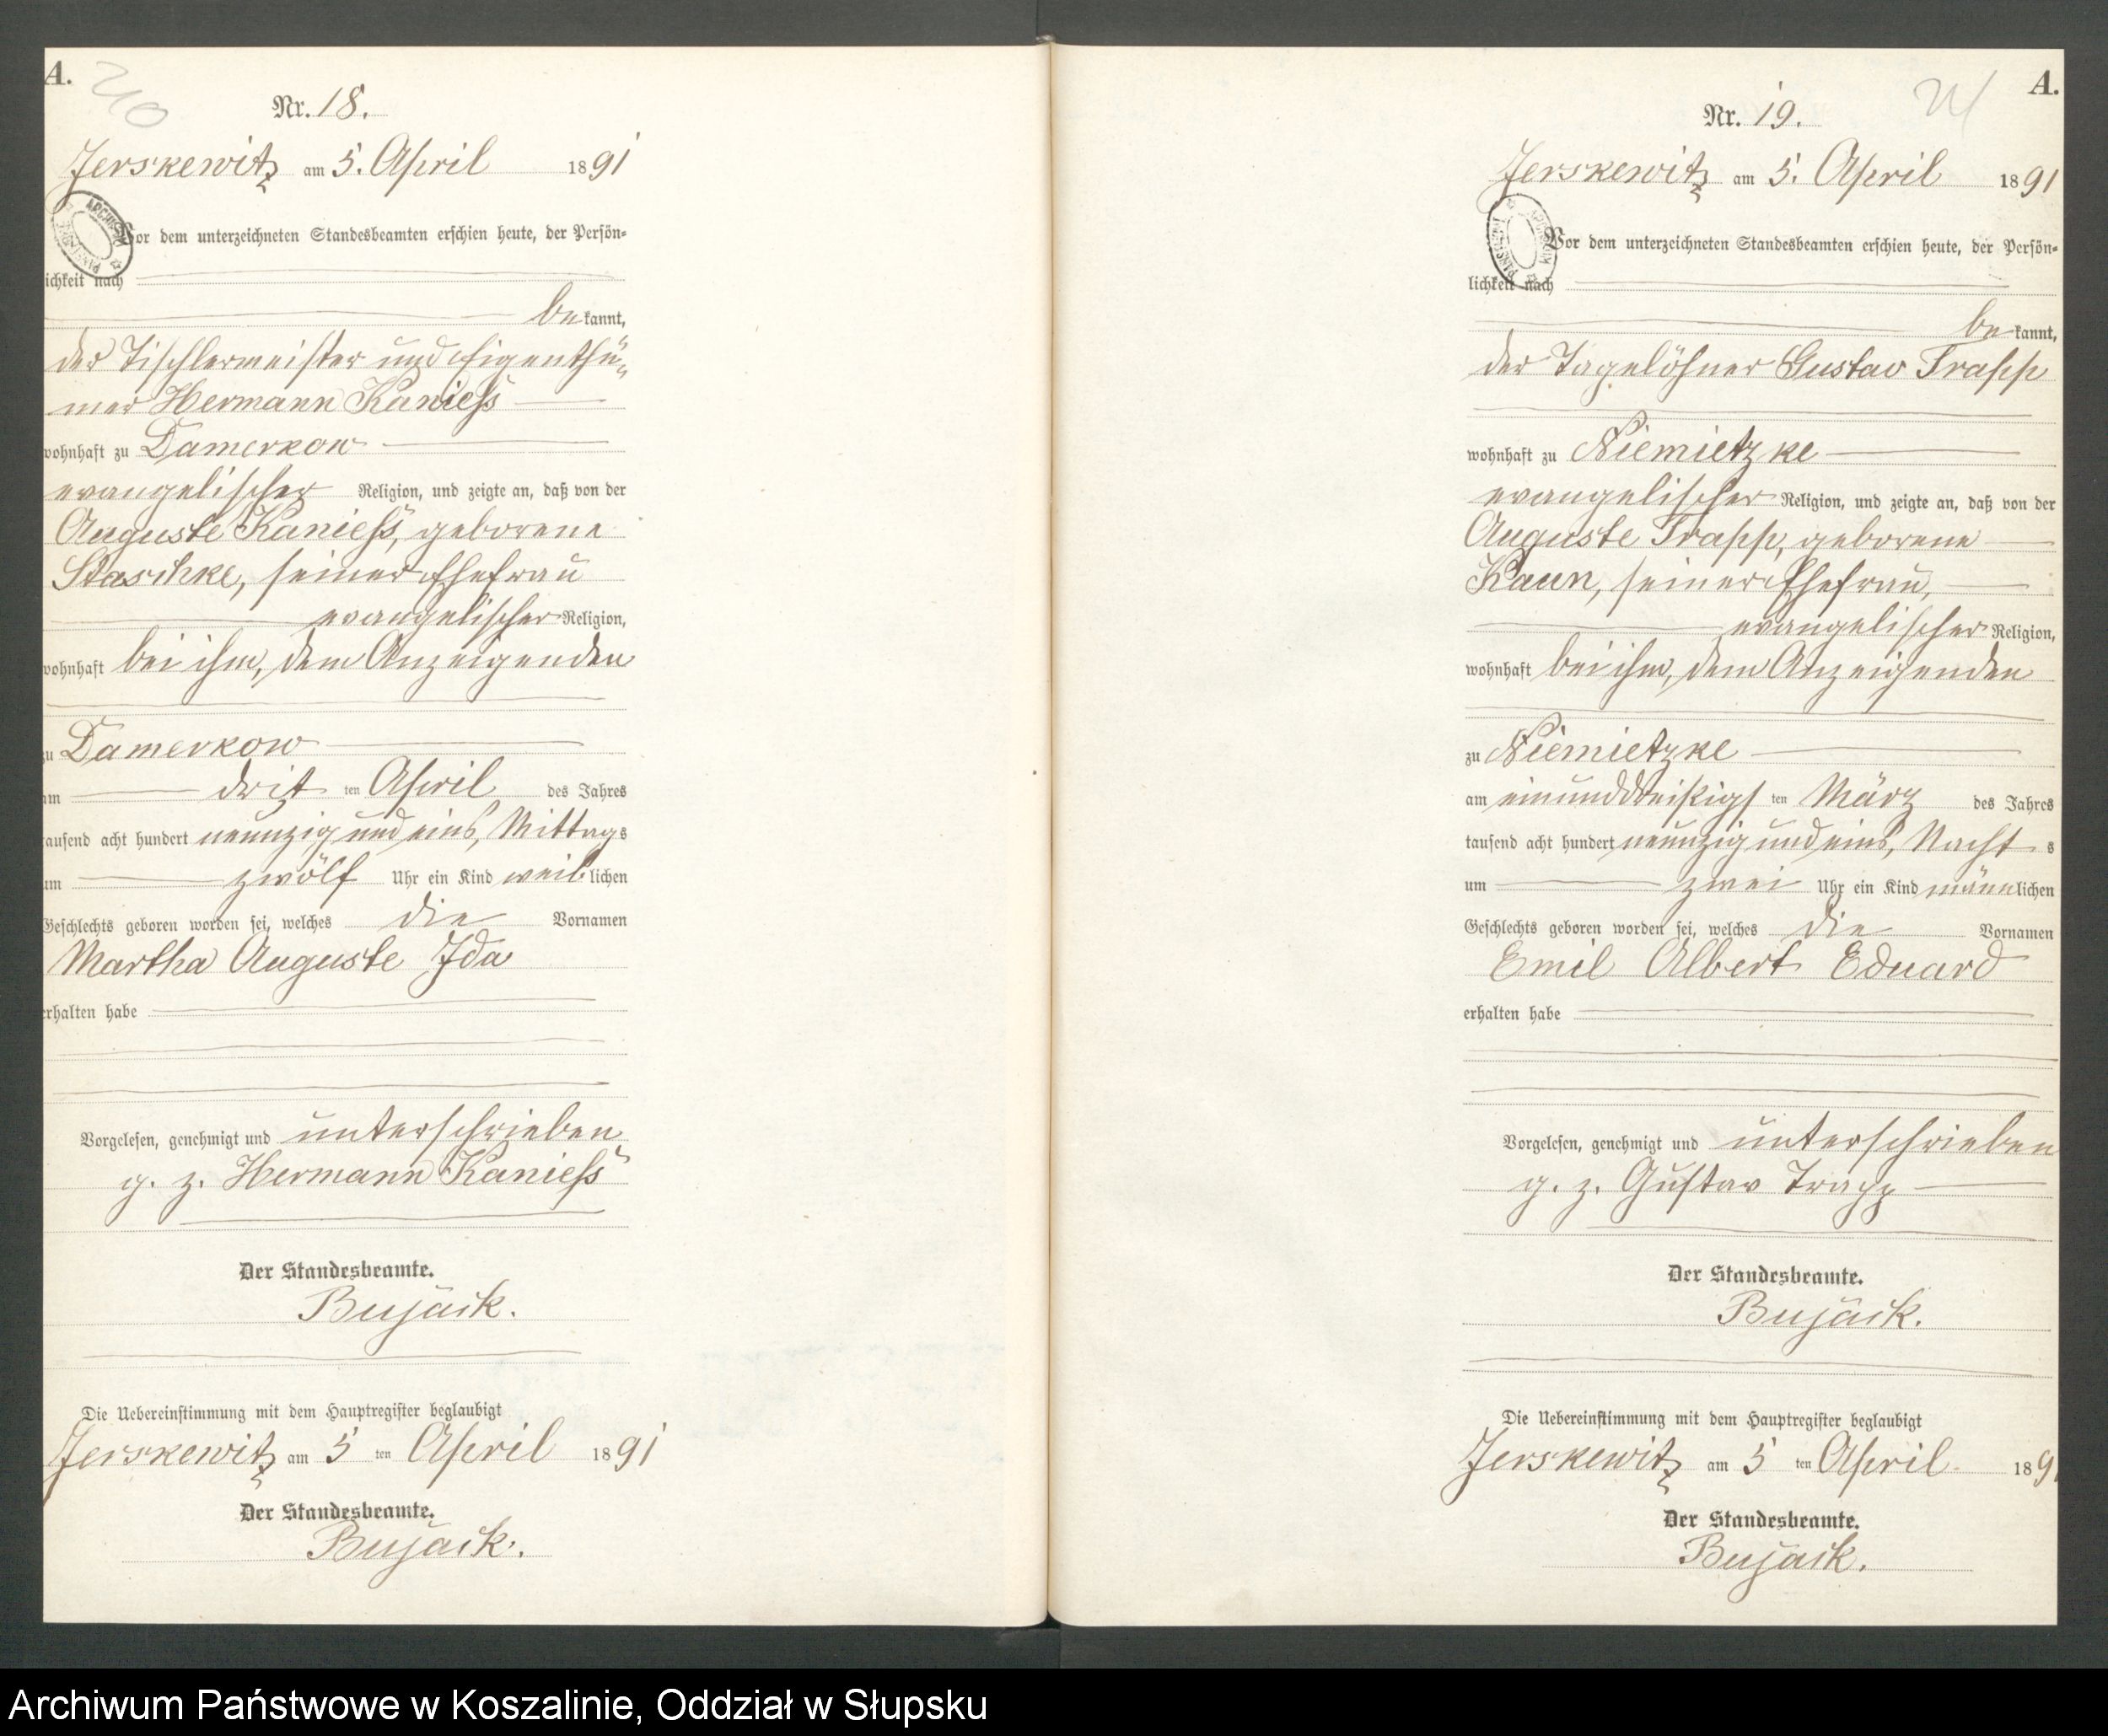 A.
Nr. 18.
Jerskewitz am 5. April 1891
Vor dem unterzeichneten Standesbeamten erschien heute, der Persön=
ichkeit nach
be kannt,
der Tischlermeister und Eigenthü=
mer Hermann Kaniess
wohnhaft zu Damerkow
evangelischer Religion, und zeigte an, daß von der
Auguste Kaniess, geborene
Staschke, seiner Ehefrau
evangelischer Religion,
wohnhaft bei ihm, dem Anzeigenden
zu Damerkow
am drit ten April des Jahres
tausend acht hundert neunzig und eins, Mittags
um zwölf Uhr ein Kind weiblichen
Geschlechts geboren worden sei, welches die Vornamen
Martha Auguste Ida
erhalten habe
Vorgelesen, genehmigt und unterschrieben
g. z. Hermann Kaniess
Der Standesbeamte.
Bujack.
Die Uebereinstimmung mit dem Hauptregister beglaubigt
Jerskewitz am 5 ten April 1891
Der Standesbeamte.
Bujack.
A.
Nr. 19.
Jerskewitz am 5. April 1891
Vor dem unterzeichneten Standesbeamten erschien heute, der Persön=
lichkeit nach
be kannt,
der Tagelöhner Gustav Trapp
wohnhaft zu Niemietzke
evangelischer Religion, und zeigte an, daß von der
Auguste Trapp, geborene
Kaun, seiner Ehefrau,
evangelischer Religion,
wohnhaft bei ihm, dem Anzeigenden
zu Niemietzke
am einunddreißigs ten März des Jahres
tausend acht hundert neunzig und eins, Nacht s
um zwei Uhr ein Kind männlichen
Geschlechts geboren worden sei, welches die Vornamen
Emil Albert Eduard
erhalten habe
Vorgelesen, genehmigt und unterschrieben
g. z. Gustav Trapp
Der Standesbeamte.
Bujack.
Die Uebereinstimmung mit dem Hauptregister beglaubigt
Jerskewitz am 5 ten April 1891
Der Standesbeamte.
Bujack.
Archiwum Państwowe w Koszalinie, Oddział w Słupsku